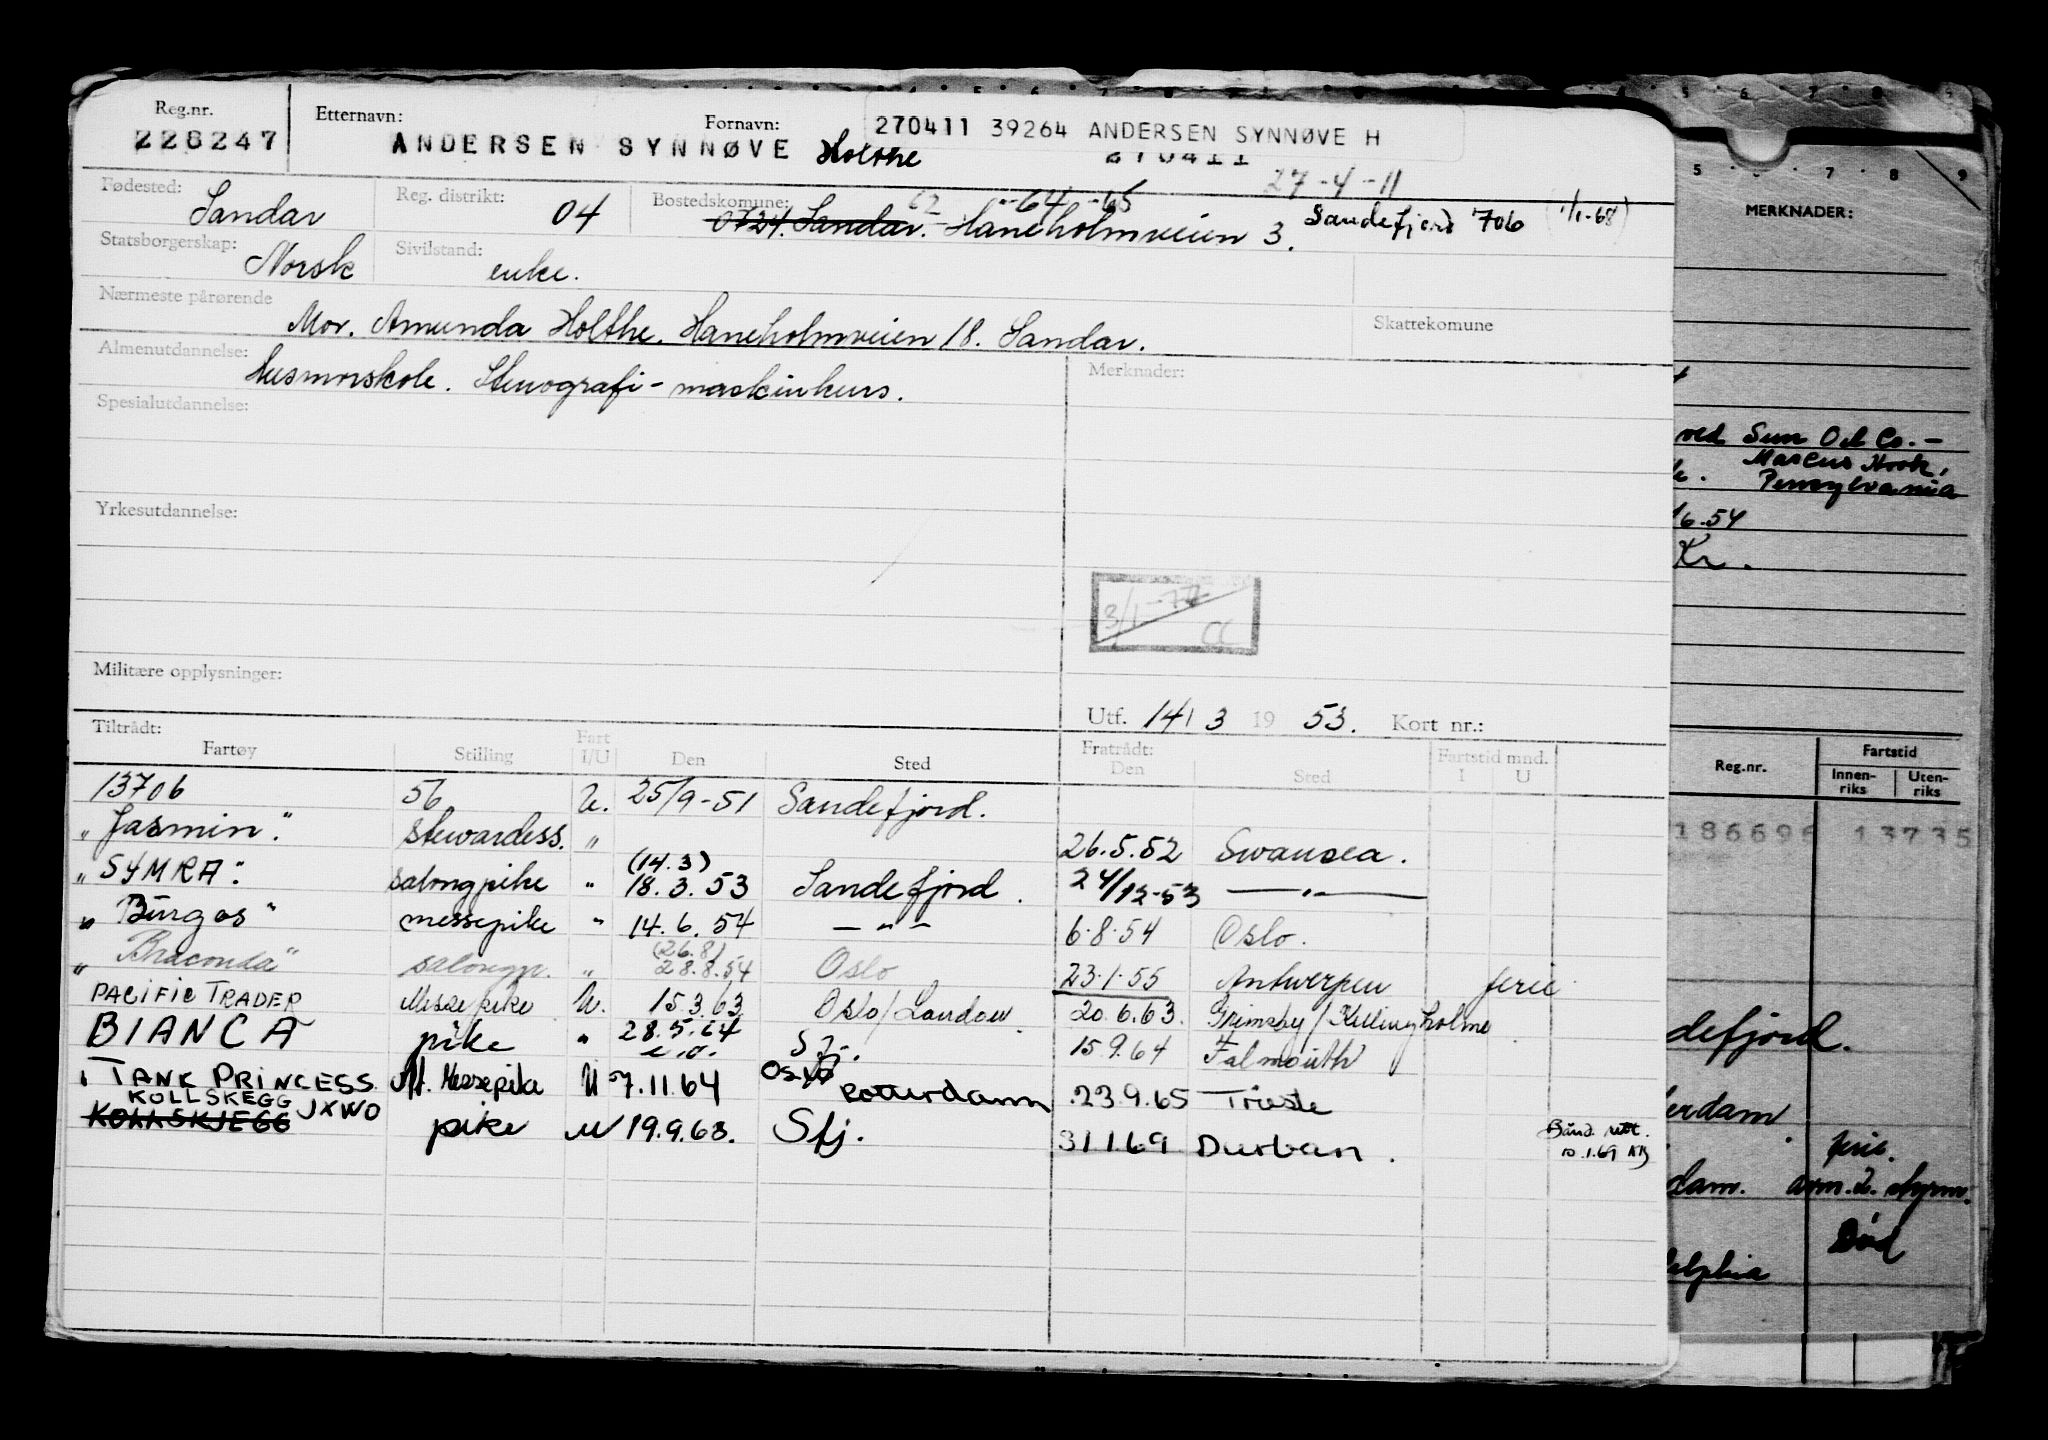 Reg.nr. Etternavn: Fornavn: 270411 39264 ANDERSEN SYNNØVE H
226247 ANDERSEN SYNNØVE Holthe 270411
27-4-11
Fødested: Sandar Reg. distrikt: 04 Bostedskomune: 62 -64 -65
0724. Sandar. Haneholmveien 3. Sandefjord 706 (1/1-68)
Statsborgerskap: Norsk Sivilstand: enke.
Nærmeste pårørende Mor. Amunda Holthe. Haneholmveien 18. Sandar. Skattekomune
Almenutdannelse: Husmorskole. Stenografi - maskinkurs. Merknader:
Spesialutdannelse:
Yrkesutdannelse:
3/1-72
CC
Militære opplysninger:
Utf. 14/3 1953. Kort nr.:
Tiltrådt: Fratrådt: Fartstid mnd.
Fartøy Stilling Fart I/U Den Sted Den Sted I U
13706 56 U. 25/9-51 Sandefjord.
"Jasmin". stewardess. " 26.5.52 Swansea.
"SYMRA: salongpike " (14.3) 18.3.53 Sandefjord. 24/12-53 —"—
"Burgos" messepike " 14.6.54 —"— 6.8.54 Oslo.
"Braconda" salongp. " (26.8) 28.8.54 Oslo 23.1.55 Antwerpen ferie
PACIFIC TRADER Messepike U. 15.3.63 Oslo/London 20.6.63. Grimsby/Killingholme
BIANCA pike " 28.5.64 e.o. Sfj. 15.9.64 Falmouth
TANK PRINCESS Messepike U 7.11.64 Oslo Rotterdamm 23.9.65 Trieste
KOLLSKEGG JXWO
KOLLSKJEGG pike U 19.9.68. Sfj. 31.1.69 Durban.
10.1.69
5 6 7 8 9
MERKNADER:
ved Sun Oil Co. -
Marcus Hook,
Pensylvania
6.54
Kr.
Reg.nr. Fartstid
Innen-riks Uten-riks
186696 13735
defjord.
erdam
ferie.
dam. 2. styrm.
Død
elphia